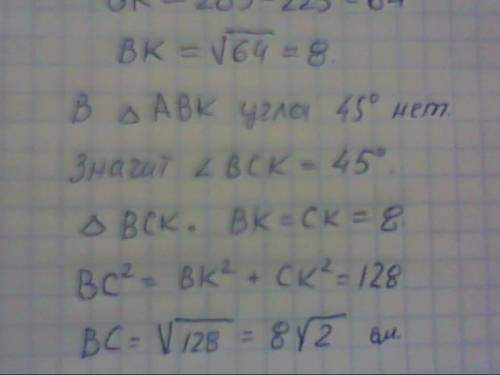 = 289 - 225 = 64
BK = √64 = 8.
В △ ABK угла 45° нет.
Значит ∠ BCK = 45°.
△ BCK. BK = CK = 8
BC² = BK² + CK² = 128
BC = √128 = 8√2 см.